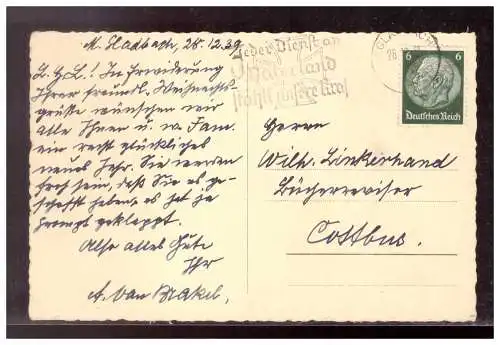 M. Gladbach, 28.12.39
L. G. L.! In Erwiderung
Ihrer freundl. Weihnachts-
grüße wünschen wir
alle Ihnen u. w. Fam.
ein recht glückliches
neues Jahr. Sie werden
froh sein, daß Sie es ge-
schafft haben, es hat ja
prompt geklappt.
Also alles Gute
Ihr
A. van Brakel.
Jeder Dienst am
Vaterland
stählt unsere Kraf
6 6
Deutsches Reich
Herrn
Wilh. Linkerhand
Bücherrevisor
Cottbus.